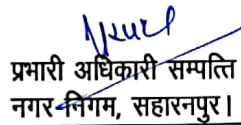 प्रभारी अधिकारी सम्पत्ति
नगर निगम, सहारनपुर।